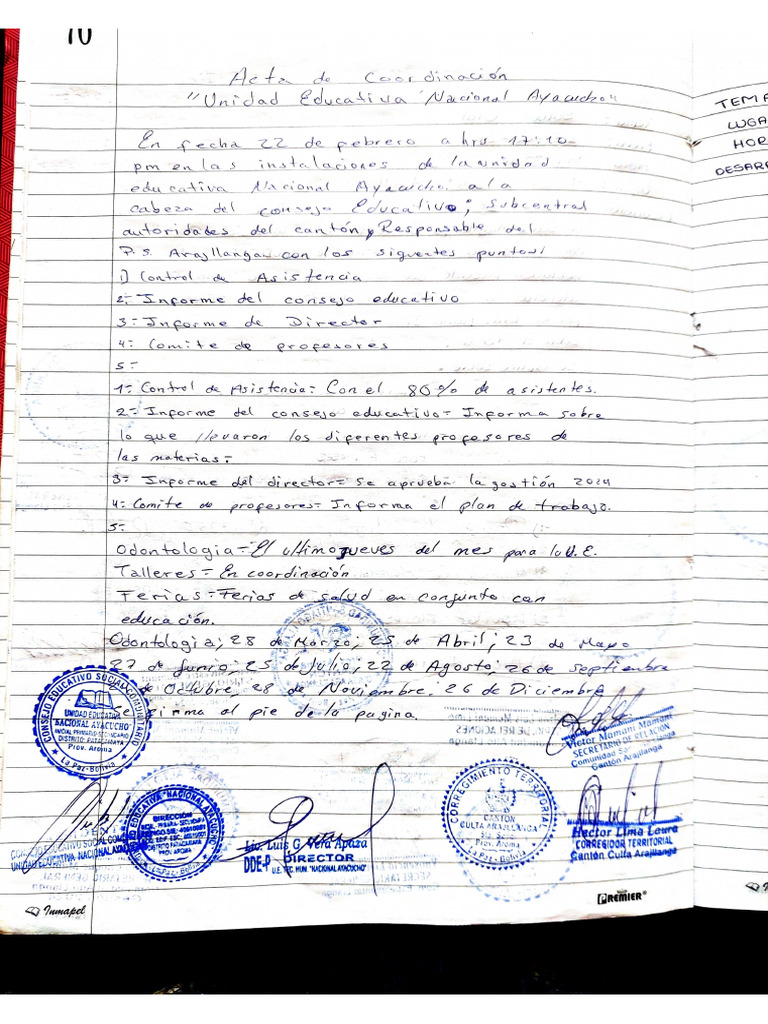 10
Acta de Coordinación
"Unidad Educativa Nacional Ayacucho"
En fecha 22 de febrero a hrs 17:10
pm en las instalaciones de la unidad
educativa Nacional Ayacucho a la
cabeza del consejo Educativo; Subcentral
autoridades del cantón y Responsable del
P.S. Arajllanga con los siguentes puntos:
1) Control de Asistencia
2.- Informe del consejo educativo
3.- Informe de Director
4.- Comite de profesores
5.-
1.- Control de Asistencia= Con el 80% de asistentes.
2.- Informe del consejo educativo= Informa sobre
lo que llevaron los diferentes profesores de
las materias.-
3.- Informe del director= se aprueba la gestión 2024
4.- Comite de profesores= Informa el plan de trabajo.
5.-
Odontologia= El ultimo jueves del mes para la U.E.
Talleres= En coordinación
Ferias= Ferias de salud en conjunto con
educación.
Odontologia; 28 de Marzo; 25 de Abril; 23 de Mayo
27 de Junio; 25 de Julio; 22 de Agosto; 26 de septiembre
de Octubre, 28 de Noviembre, 26 de Diciembre
firma al pie de la pagina.
CONSEJO EDUCATIVO SOCIAL COMUNITARIO
UNIDAD EDUCATIVA
NACIONAL AYACUCHO
INICIAL PRIMARIO SECUNDARIO
DISTRITO: PATACAMAYA
Prov. Aroma
La Paz-Bolivia
Victor Mamani Mamani
SECRETARIO DE RELACION
Comunidad
Cantón Arajllanga
UNIDAD EDUCATIVA NACIONAL AYACUCHO
EDUCATIVA "NACIONAL AYACUCHO"
DIRECCIÓN
DISTRITO PATACAMAYA
PROV. AROMA
La Paz - Bolivia
Lic. Luis G. Vera Apaza
DDE-P DIRECTOR
U.E. TEC. HUM. "NACIONAL AYACUCHO"
CORREGIMIENTO TERRITORIAL
CANTON
CULTA ARAJLLANGA
Prov. Aroma
La Paz - Bolivia
Hector Lima Laura
CORREGIDOR TERRITORIAL
Cantón Culta Arajllanga
Inmapel
PREMIER®
TEMA
LUGA
HOR
DESAR